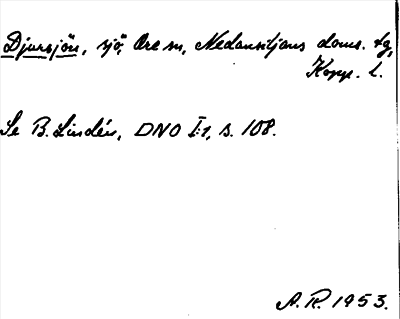 Djursjön, sjö, Ore sn, Nedansiljans doms. tg,
Kopp. l.
Se B. Lindén, DNO I:1, s. 108.
A. R. 1953.